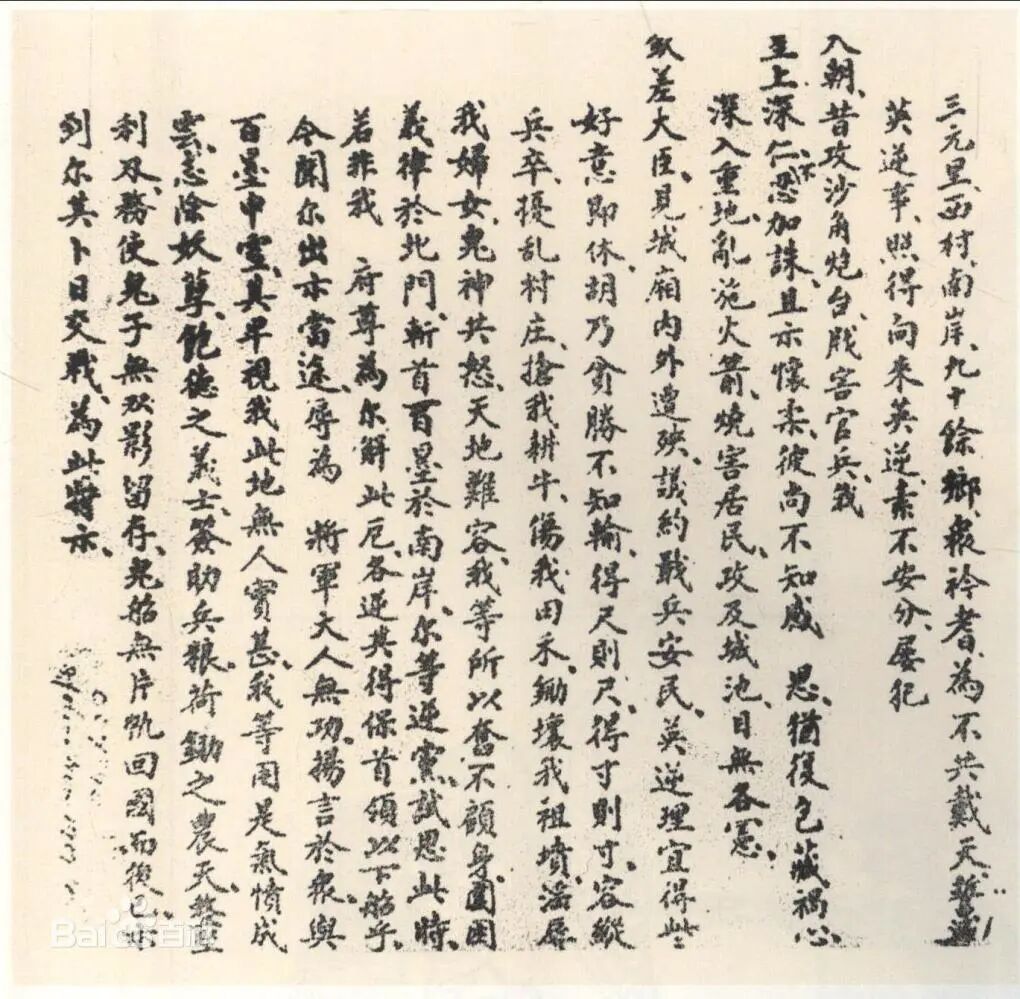 三元里、西村、南岸、九十餘鄉衆衿耆、為不共戴天、誓滅
英逆事、照得向来英逆、素不安分、屡犯
入朝、昔攻沙角炮台、戕害官兵、我
至上深仁、不忍加誅、且示懷柔、彼尚不知感　恩、猶復包藏禍心、
深入重地、亂施火箭、燒害居民、攻及城池、目無各憲、
欽差大臣、見城廂内外遭殃、議約戰兵安民、英逆理宜得些
好意即休、胡乃貪勝不知輸、得尺則尺、得寸則寸、容縱
兵卒、擾乱村庄、搶我耕牛、傷我田禾、鋤壞我祖墳、淫辱
我婦女、鬼神共怒、天地難容、我等所以奮不顧身、圍困
義律於北門、斬首百墨於南岸、尔等逆黨、試思此時、
若非我　府尊為尔解此厄、各逆其得保首領以下船乎、
今聞尔出示當途、辱為　將軍大人無功、揚言於衆、與
百墨申寃、其早視我此地無人實甚、我等用是氣憤成
雲、志除妖孽、飽德之義士、簽助兵粮、荷鋤之農夫、操堅
利刃、務使鬼子無双影留存、鬼船無片帆回國而後已
到尔其卜日交戰、為此特示、
Bai百科